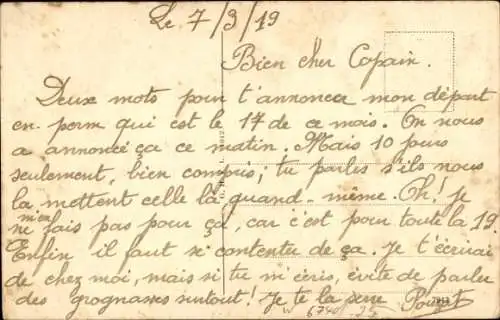 Le 7/3/19
Bien cher Copain.
Deux mots pour t'annoncer mon départ
en perm qui est le 17 de ce mois. On nous
a annoncé ça ce matin. Mais 10 jours
seulement, bien compris; tu parles s'ils nous
la mettent celle là quand-même. Oh! Je
m'en
ne fais pas pour ça, car c'est pour toute la 19.
Enfin il faut se contenter de ça. Je t'écrirai
de chez moi, mais si tu m'écris, évite de parler
des grognasses surtout! Je te la serre